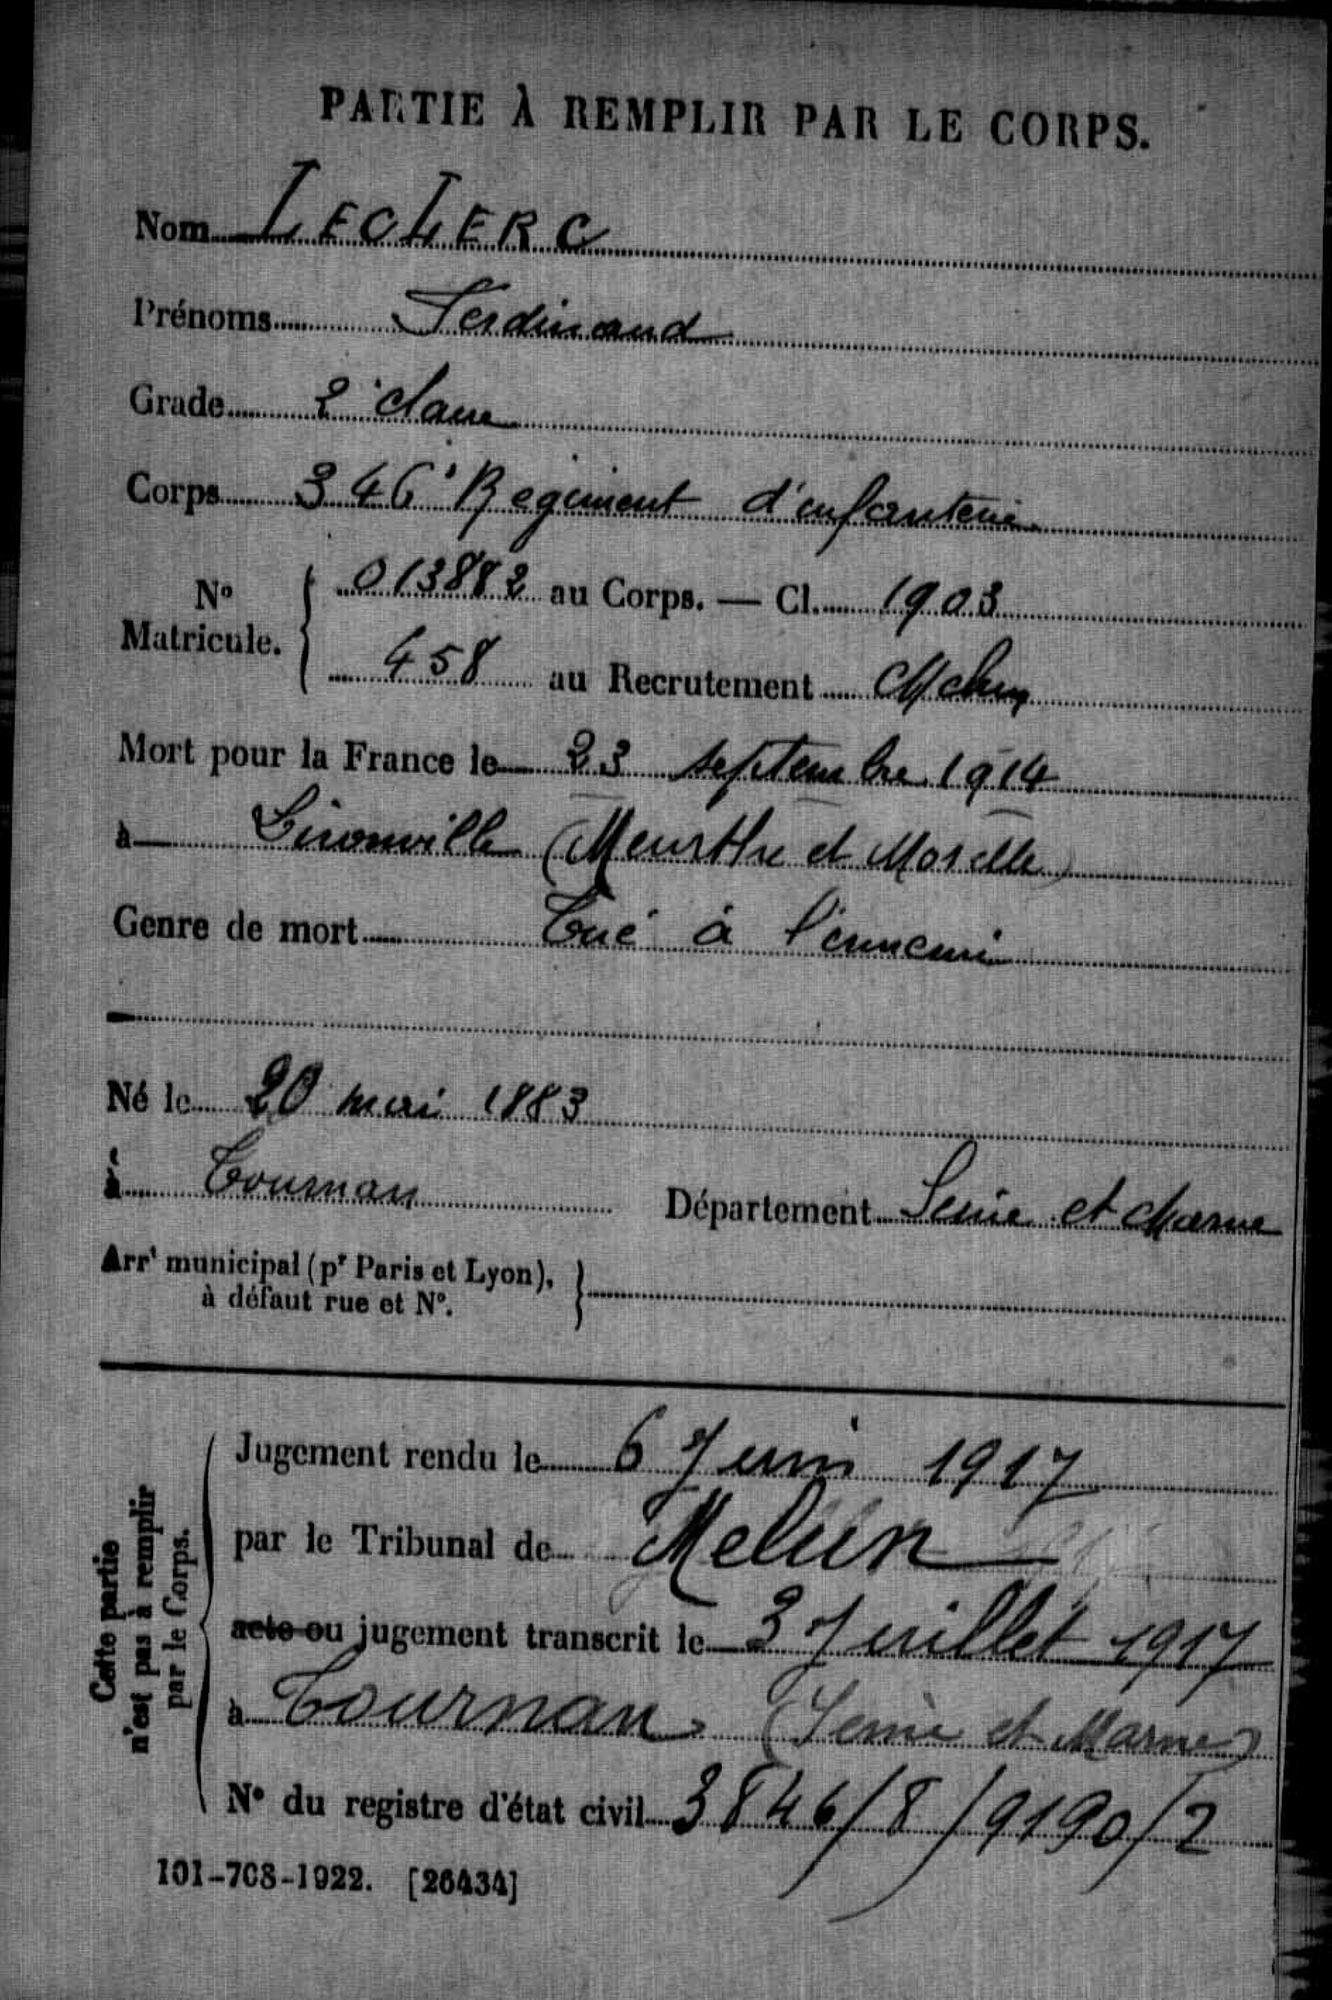 PARTIE À REMPLIR PAR LE CORPS.
Nom LECLERC
Prénoms Ferdinand
Grade 2e classe
Corps 346e Régiment d'infanterie
No Matricule. 013882 au Corps. — Cl. 1903
458 au Recrutement Melun
Mort pour la France le 23 septembre 1914
à Lironville (Meurthe et Moselle)
Genre de mort Tué à l'ennemi
Né le 20 mai 1883
à Tournan Département Seine et Marne
Arrt municipal (pr Paris et Lyon),
à défaut rue et No.
Cette partie
n'est pas à remplir
par le Corps.
Jugement rendu le 6 Juin 1917
par le Tribunal de Melun
acte ou jugement transcrit le 3 Juillet 1917
à Tournan (Seine et Marne)
No du registre d'état civil 3846/8/9190/2
101-708-1922. [26434]